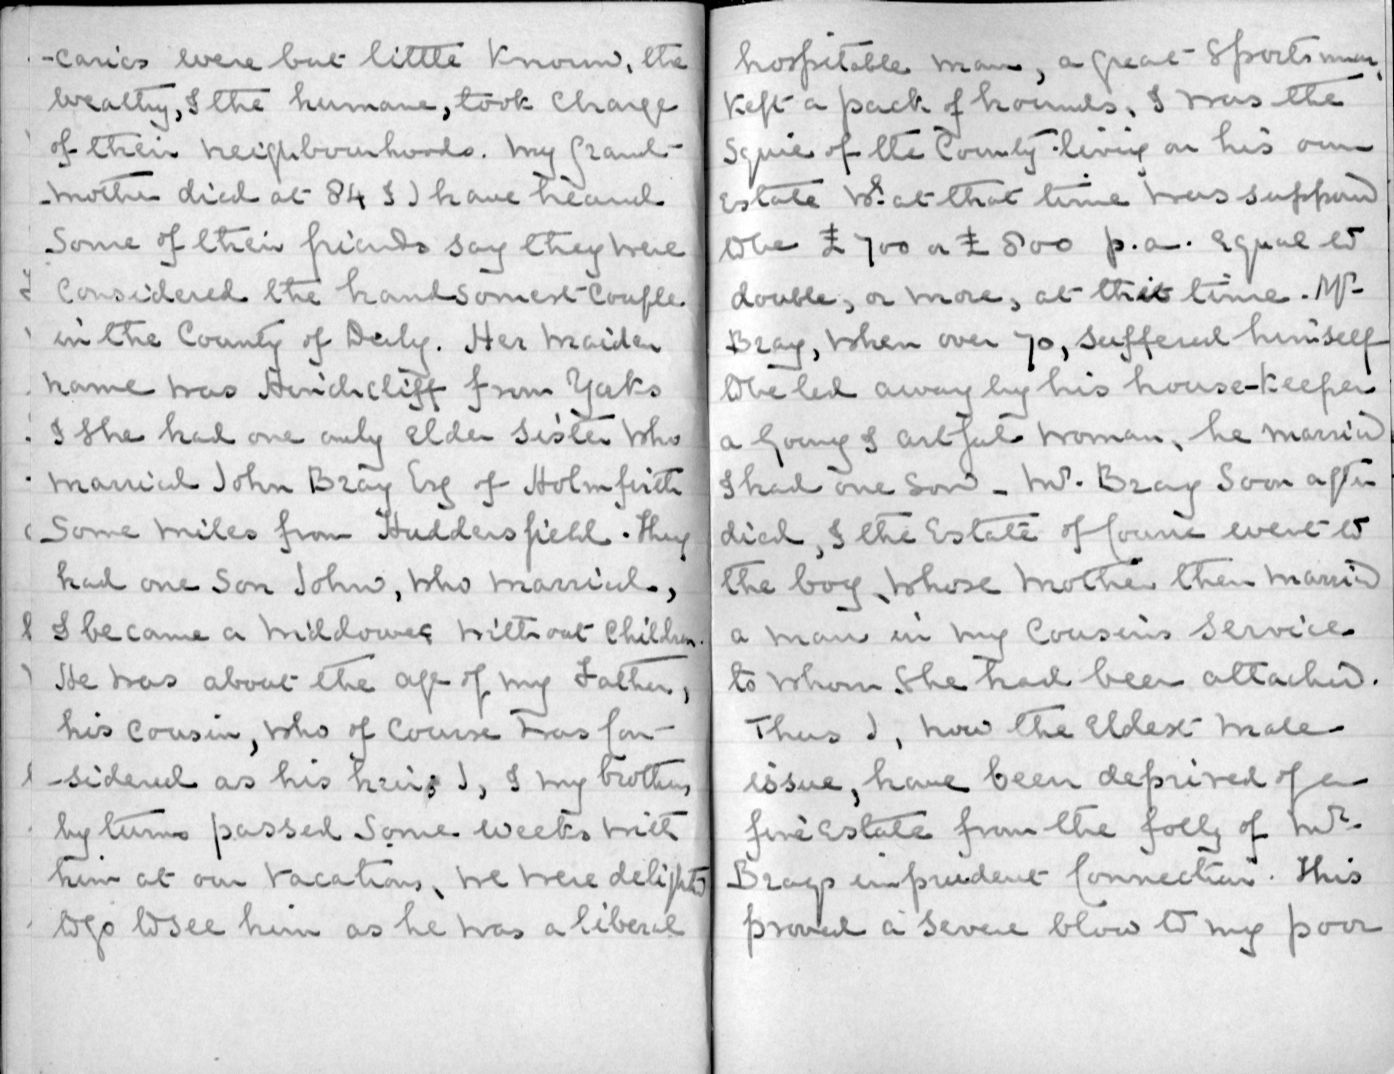 -caries were but little known, the
wealthy, & the humane, took charge
of their neighbourhoods. My Grand-
-mother died at 84 & I have heard
some of their friends say they were
considered the handsomest couple
in the County of Derby. Her maiden
name was Hinchcliff from Yorks
& she had one only elder sister who
married John Bray Esq of Holmfirth
some miles from Huddersfield. They
had one son John, who married,
& became a widdower without children.
He was about the age of my Father,
his cousin, who of course was con-
-sidered as his heir; I, & my brothers,
by turns passed some weeks with
him at our vacations, we were delighted
to go to see him as he was a liberal
hospitable man, a great Sportsman,
kept a pack of hounds, & was the
Squire of the County living on his own
Estate wh at that time was supposed
to be £700 or £800 p.a. equal to
double, or more, at this time. Mr
Bray, when over 70, suffered himself
to be led away by his house-keeper
a young & artful woman, he married
& had one son - Mr. Bray soon after
died, & the Estate of course went to
the boy, whose mother then married
a man in my cousin's service
to whom she had been attached.
Thus I, now the eldest male
issue, have been deprived of a
fine Estate from the folly of Mr.
Brays imprudent connection. This
proved a severe blow to my poor